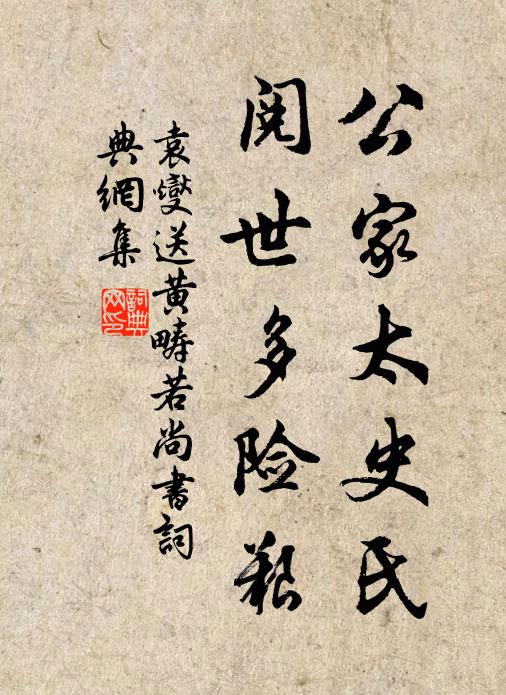 公家太史氏
阅世多险艰
袁燮送黄畴若尚書詞
典網集
詞典
网印